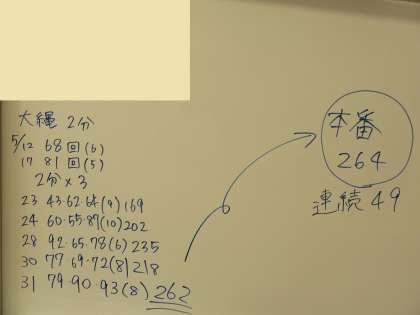 大縄 2分
5/12 68回(6)
17 81回(5)
2分×3
23 43・62・64(9)169
24 60・55・87(10)202
28 92・65・78(6)235
30 77・69・72(8)218
31 79・90・93(8)262
本番
264
連続49